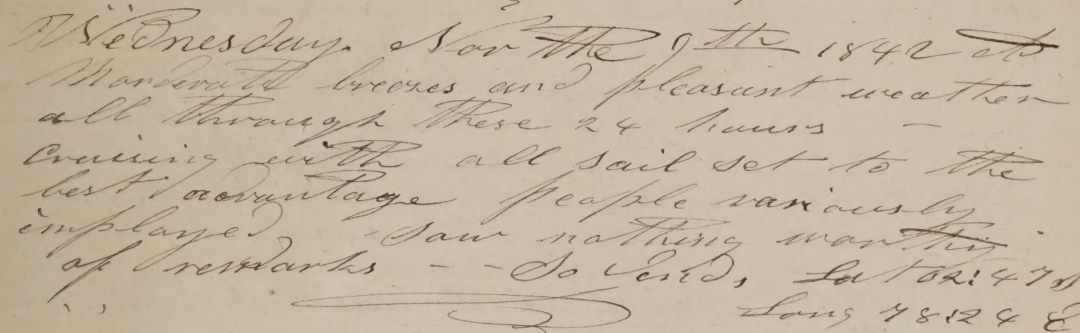 Wednesday. Nov the 9th 1842
Morderatt breezes and pleasant weather
all through these 24 hours –
cruising with all sail set to the
best advantage people variously
imployed saw nothing worthy
of remarks – – So Ends, Lat 02:47 S
Long 78:24 E